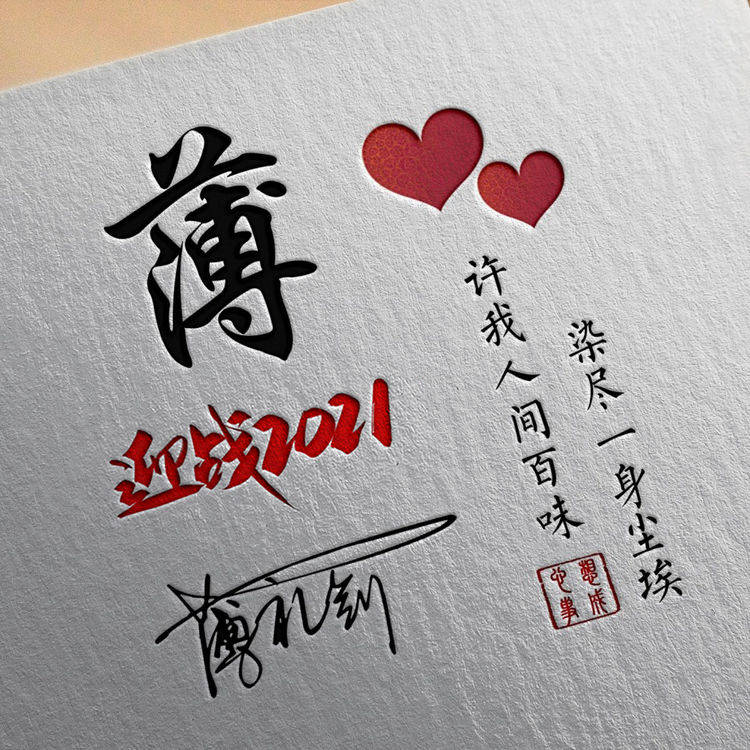 薄
迎战2021
许我人间百味
染尽一身尘埃
心想
事成